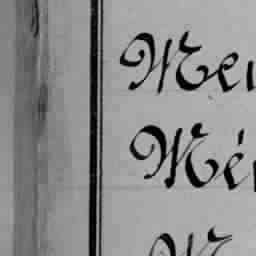 Mei
Mé
M